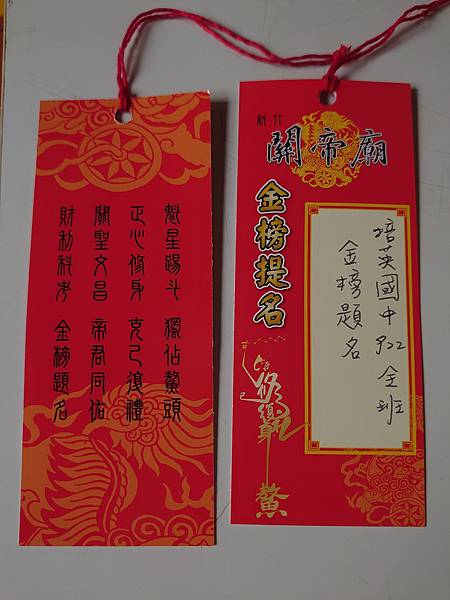 魁星踢斗 獨佔鰲頭
正心修身 克己復禮
關聖文昌 帝君同佑
財利科考 金榜題名
新竹
關帝廟
金榜提名
培英國中922全班
金榜題名
鰲